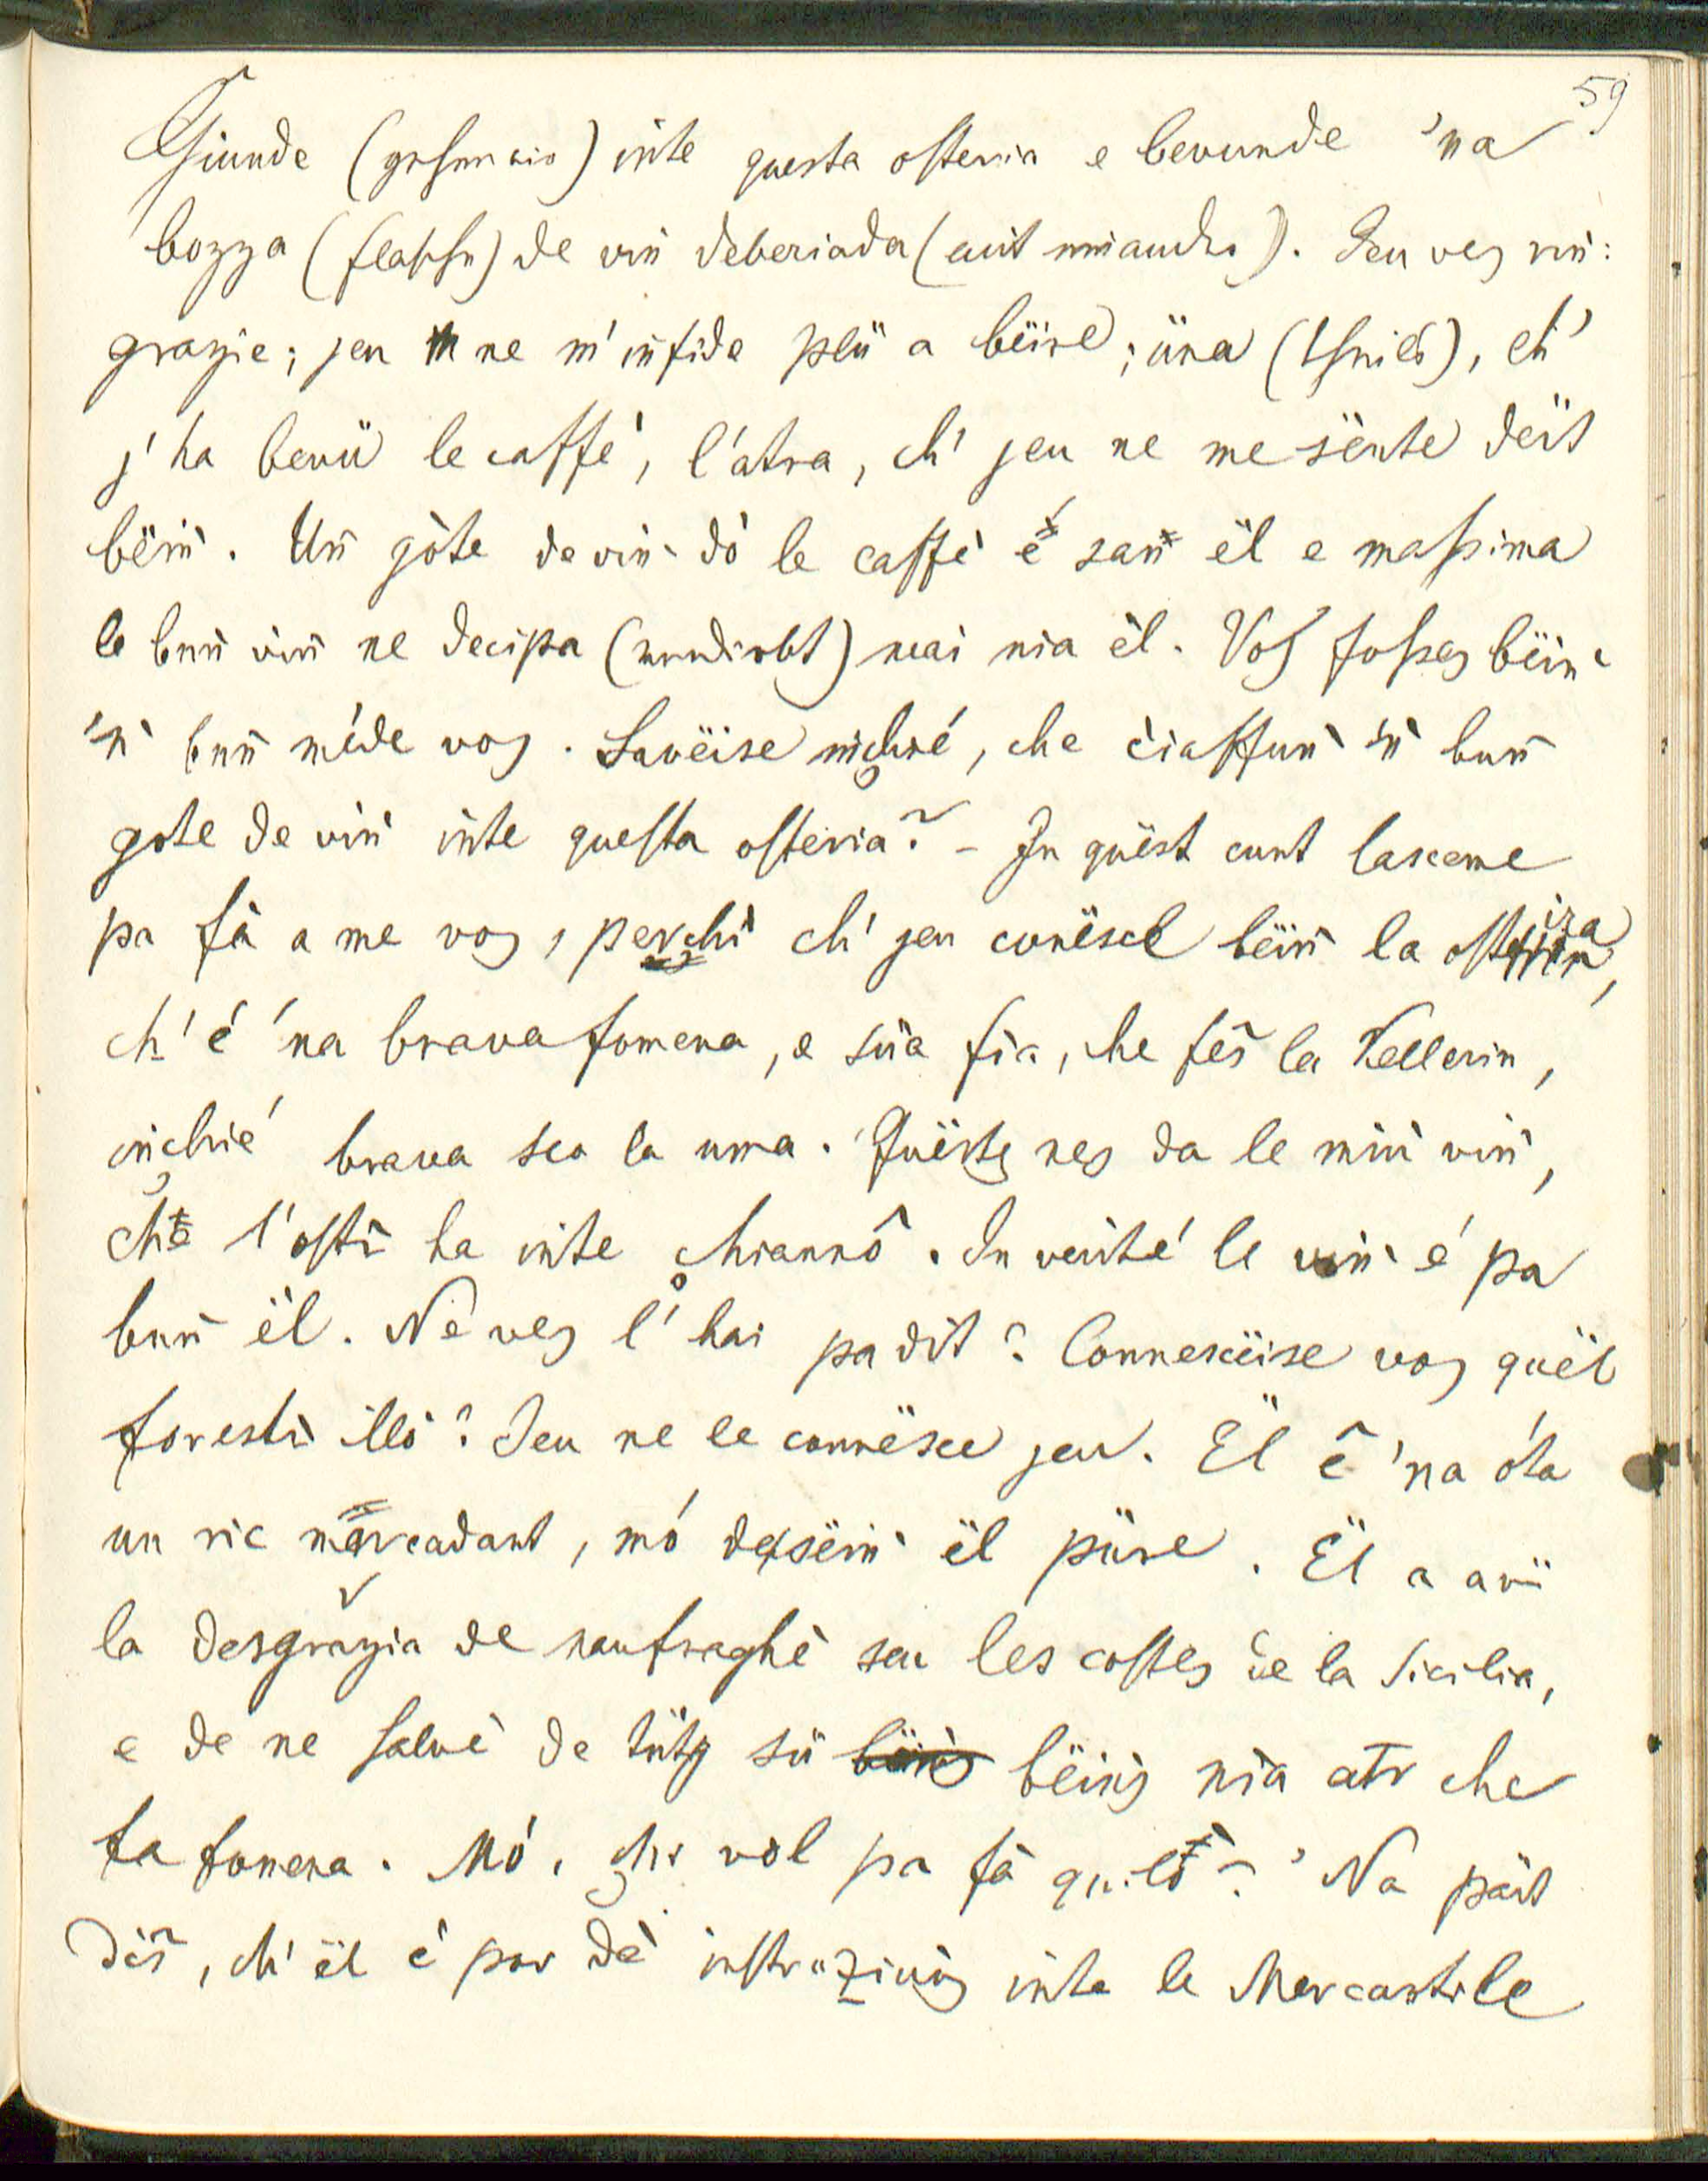 59
Giunde (gehen wir) inte questa osteria e bevunde 'na
bozza (flasche) de vin deberiada (mit einander). Jeu ves rin:
grazie; jeu ne m'infide plü a bëire; üna (theils), ch'
j'ha bevü le caffè, l'atra, ch' jeu ne me sënte dëit
bëiñ. Uñ gòte de viñ dò le caffè é sañ ël e massima
le buñ viñ ne decipa (verdirbt) mai nia ël. Vos fosses bëiñ
'ñ buñ méde vos. Savëise inchié, che ciaffuñ 'ñ buñ
gote de viñ inte questa osteria? - In quëst cunt lasceme
pa fà a me vos, perchì ch' jeu conësce bëiñ la ostira,
ch' é 'na brava fomena, e süa fia, che fês la Kellerin,
inchié brava sco la uma. Quësts nes da le miù viñ,
che l'ostì ha inte chiannô. In verité le viñ é pa
buñ ël. Ne ves l'hai pa dit? Connescëise vos quël
forestì illò? Jeu ne le connësce jeu. Ël ê 'na óta
un ric marcadant, mó dessëiñ ël püre. Ël a avü
la desgrazia de naufraghè seu les costes de la Sicilia,
e de ne salvè de tüts sü bëiñs nia atr che
la fomena. Mó, chi vol pa fà quilò? 'Na pärt
dîs, ch' ël é por dè instruziuñs inte le Mercantile